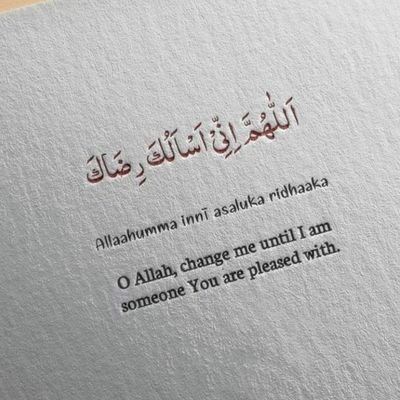 اَللّٰهُمَّ اِنِّيْ اَسْاَلُكَ رِضَاكَ
Allaahumma innī asaluka ridhaaka
O Allah, change me until I am
someone You are pleased with.